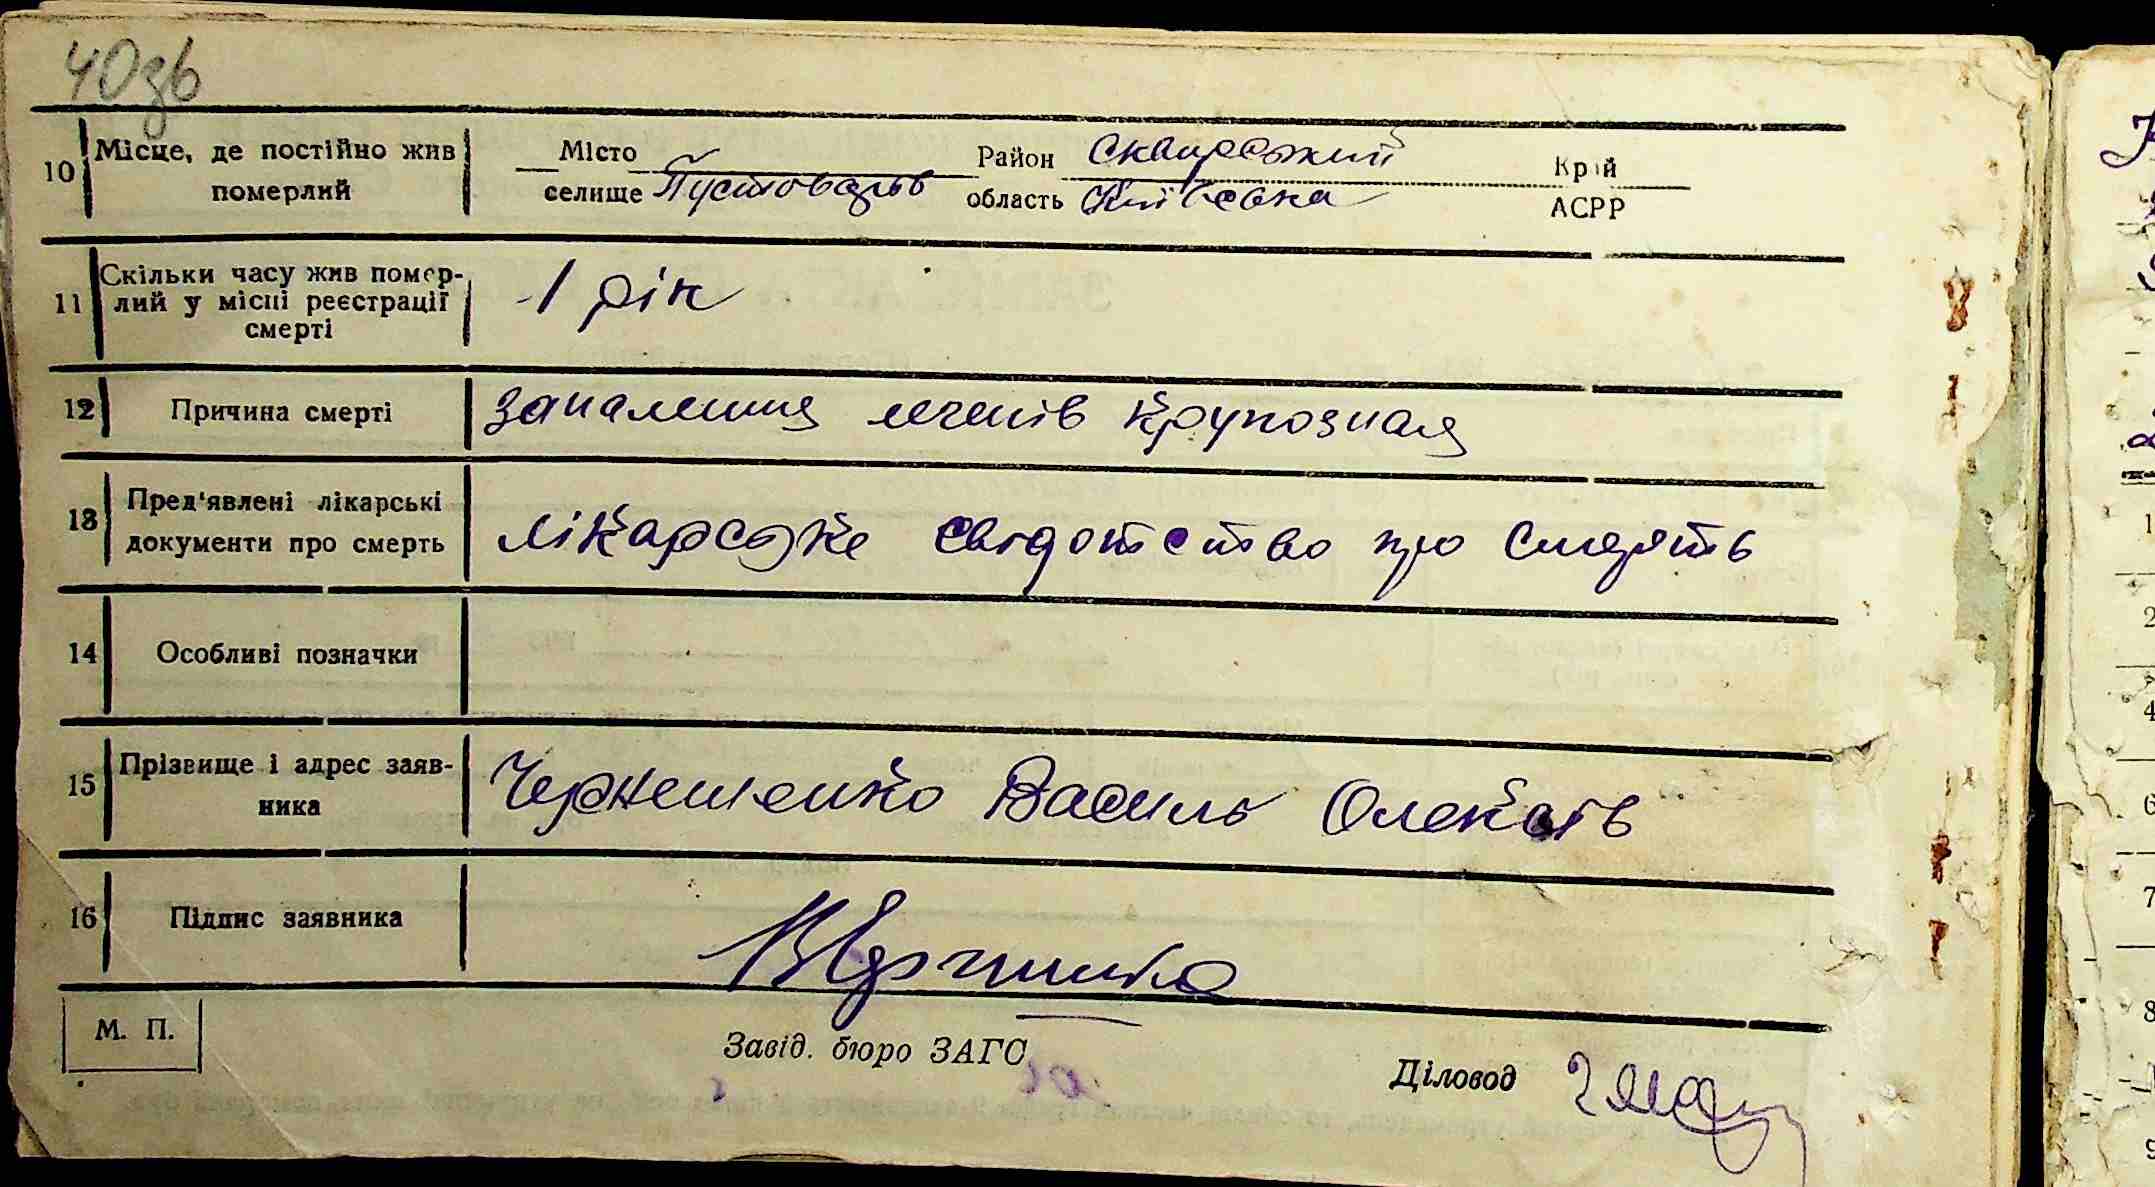 40зв
10 Місце, де постійно жив померлий
Місто селище Пустоварів Район Сквирський область Київська Край АСРР
11 Скільки часу жив помер-
лий у місці реєстрації
смерті
1 рік
12 Причина смерті
запалення легенів крупозная
13 Пред'явлені лікарські
документи про смерть
лікарське свідотство про смерть
14 Особливі позначки
15 Прізвище і адрес заяв-
ника
Василь
16 Підпис заявника
М. П.
Завід. бюро ЗАГС
Діловод